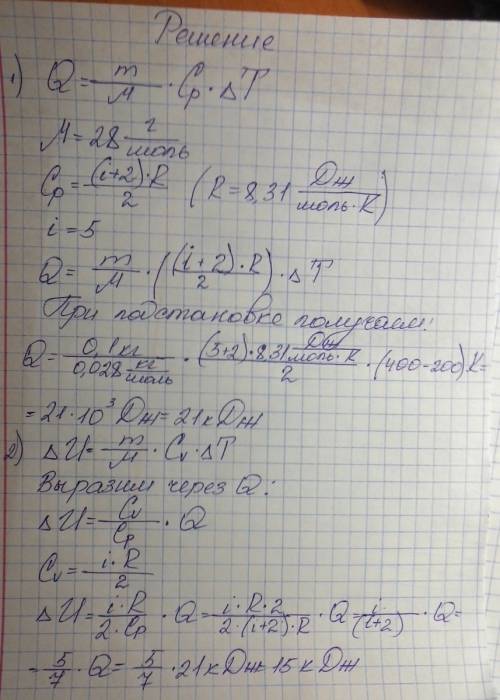 Решение
1) Q = m/M · Cp · ΔT
M = 28 г/моль
Cp = (i+2)·R/2 (R = 8,31 Дж/моль·К)
i = 5
Q = m/M · ((i+2)·R/2) · ΔT
При подстановке получаем:
Q = 0,1 кг/0,028 кг/моль · (5+2)·8,31 Дж/моль·К/2 · (400-200)К =
= 21·10³ Дж = 21 кДж
2) ΔU = m/M · Cv · ΔT
Выразим через Q:
ΔU = Cv/Cp · Q
Cv = i·R/2
ΔU = i·R/2·Cp · Q = i·R·2/2·(i+2)·R · Q = i/(i+2) · Q =
= 5/7 · Q = 5/7 · 21 кДж = 15 кДж